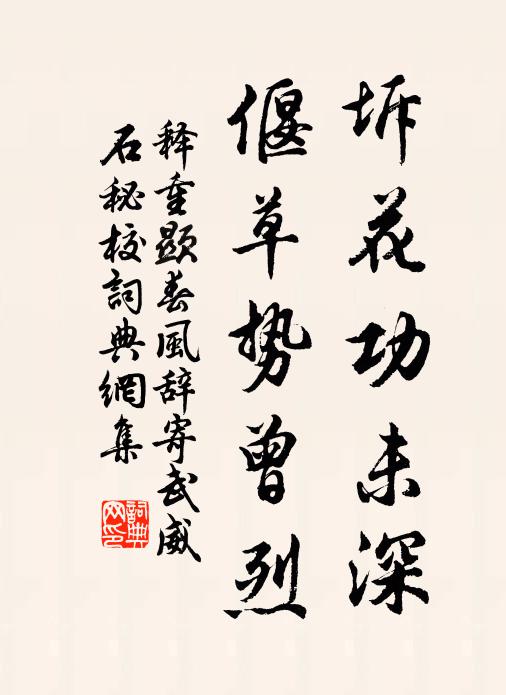 坼花功未深
偃草势曾烈
释重顯春風辞寄武威
石秘校詞典網集
詞典网印